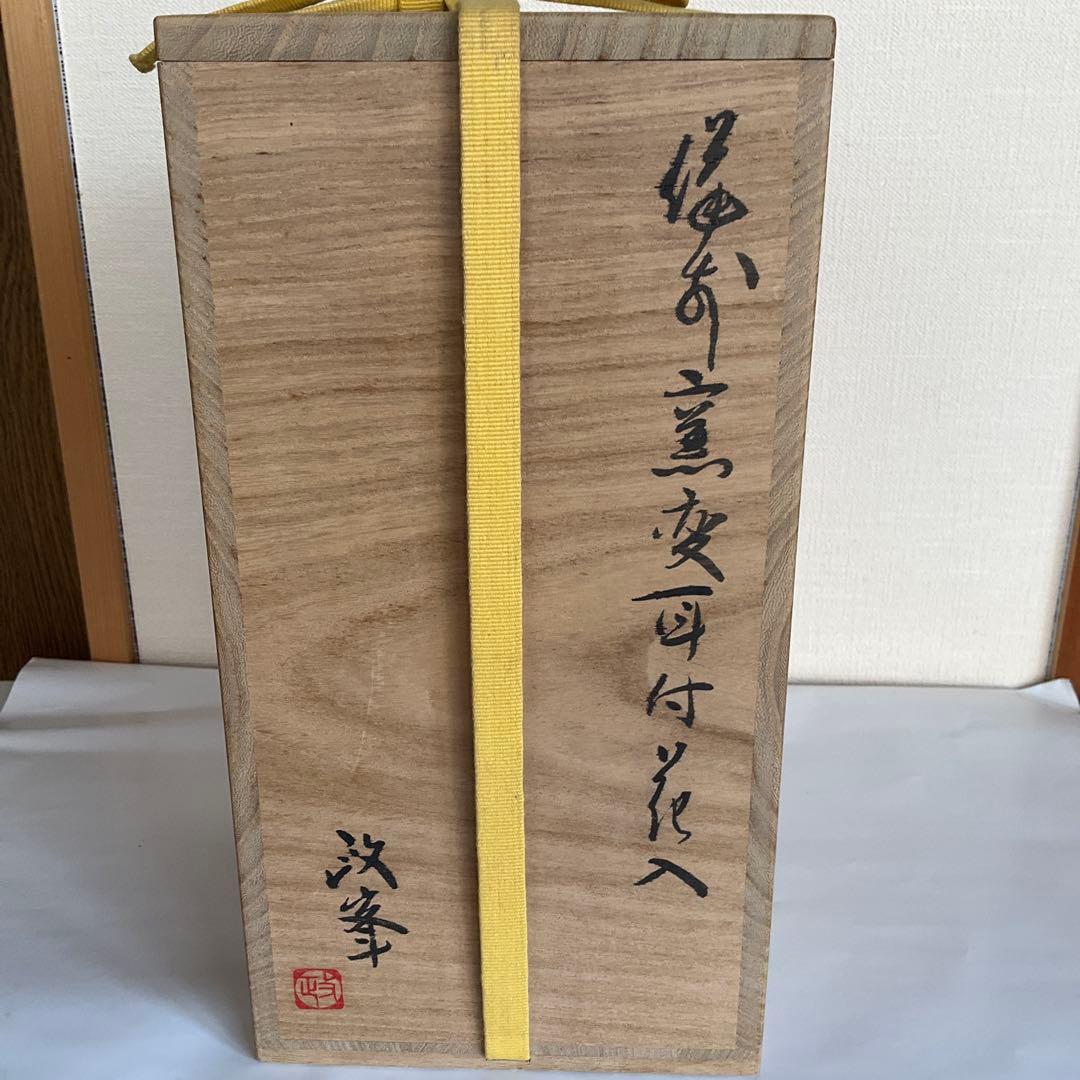 備前窯変耳付花入
政峯
政